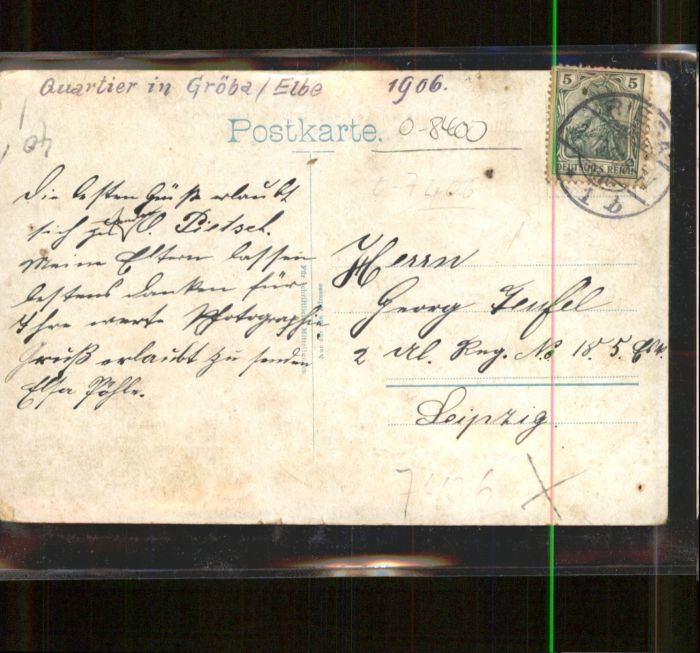 Quartier in Gröba/Elbe 1906.
Postkarte. 0-8400
5 5
DEUTSCHES REICH
1 b
Die besten Grüße erlaubt
sich zu senden O. Pietsch.
Meine Eltern lassen
bestens danken für
Ihre werte Photographie
Gruß erlaubt zu senden
Elsa Pöhle.
Herrn
Georg Teufel
2 Reg. No 18. 5.
Leipzig.